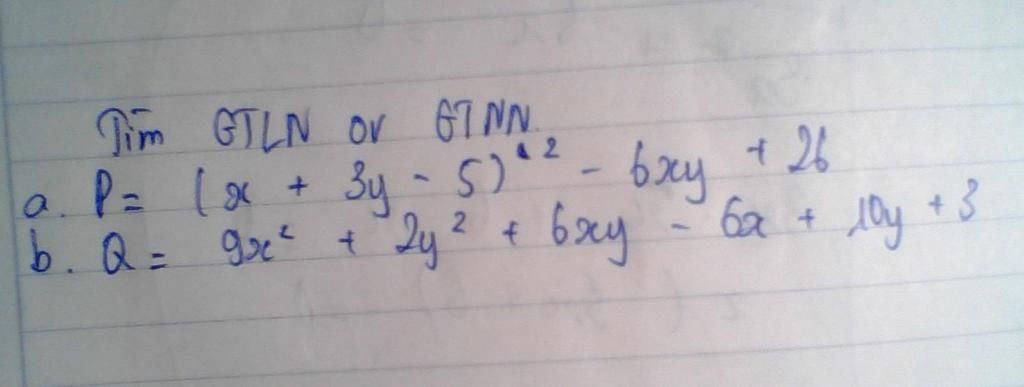 Tìm GTLN or GTNN.
a. P = (x + 3y - 5)² - 6xy + 26
b. Q = 9x² + 2y² + 6xy - 6x + 10y + 3